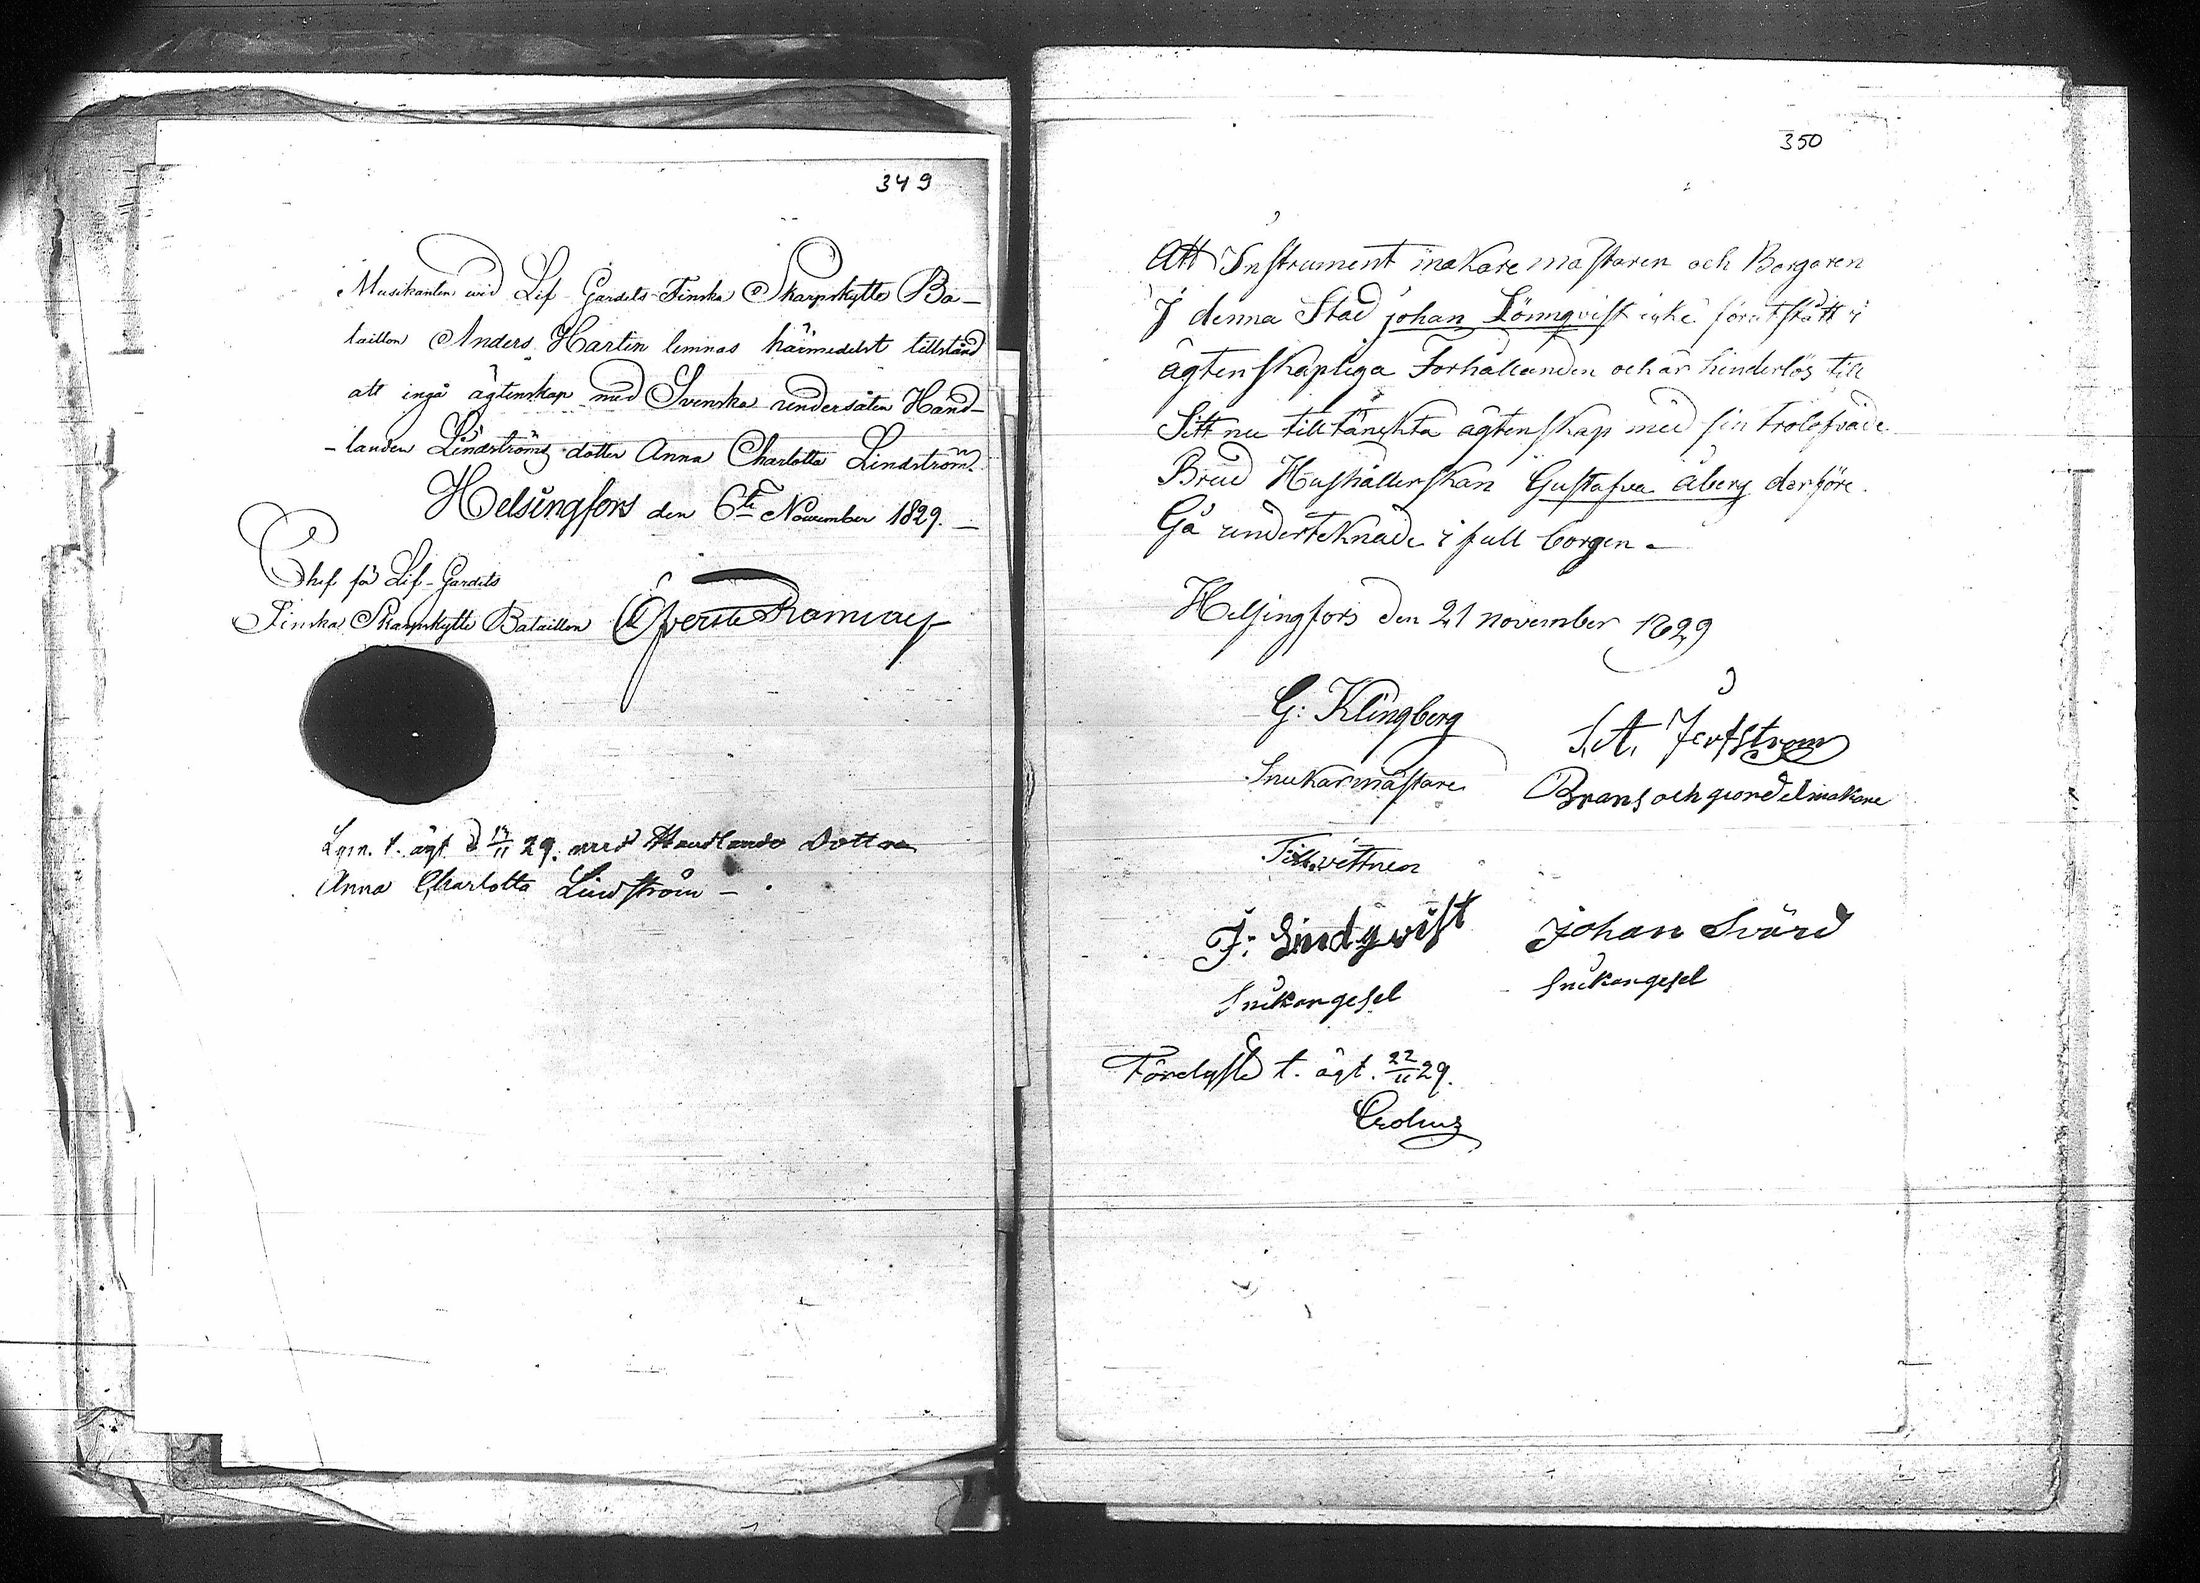 349
Musikanten wid Lif Gardets Finska Skarpskytte Ba-
taillon Anders Hartin lemnas härmedelst tillstånd
att ingå ägtenskap med Svenska undersåten Hand-
-landen Lindströms dotter Anna Charlotta Lindström.
Helsingfors den 6te November 1829. -
Chef för Lif-Gardets
Finska Skarpskytte Bataillon Öfverste Ramsay
Lysn. t. ägt. d 29. med Handlande Dottren
Anna Charlotta Lindström -
350
Att Instrument makare mästaren och Borgaren
I denna Stad johan Lönnqvist icke förut stått i
ägtenskapliga Förhållanden och är hinderlös till
Sitt nu tilltänckta ägtenskap med sin trolofvade
Brud Hushållerskan Gustafva åberg derföre
Gå underteknade i full borgen -
Helsingfors den 21 november 1829
G: Klingberg
Snikarmästare
Brans och giordelmakare
Till vittnen
J: Lindqvist Johan Svärd
Snikargesel Snikargesel
Förelyste t. ägt. 22/11 29.
Crohns